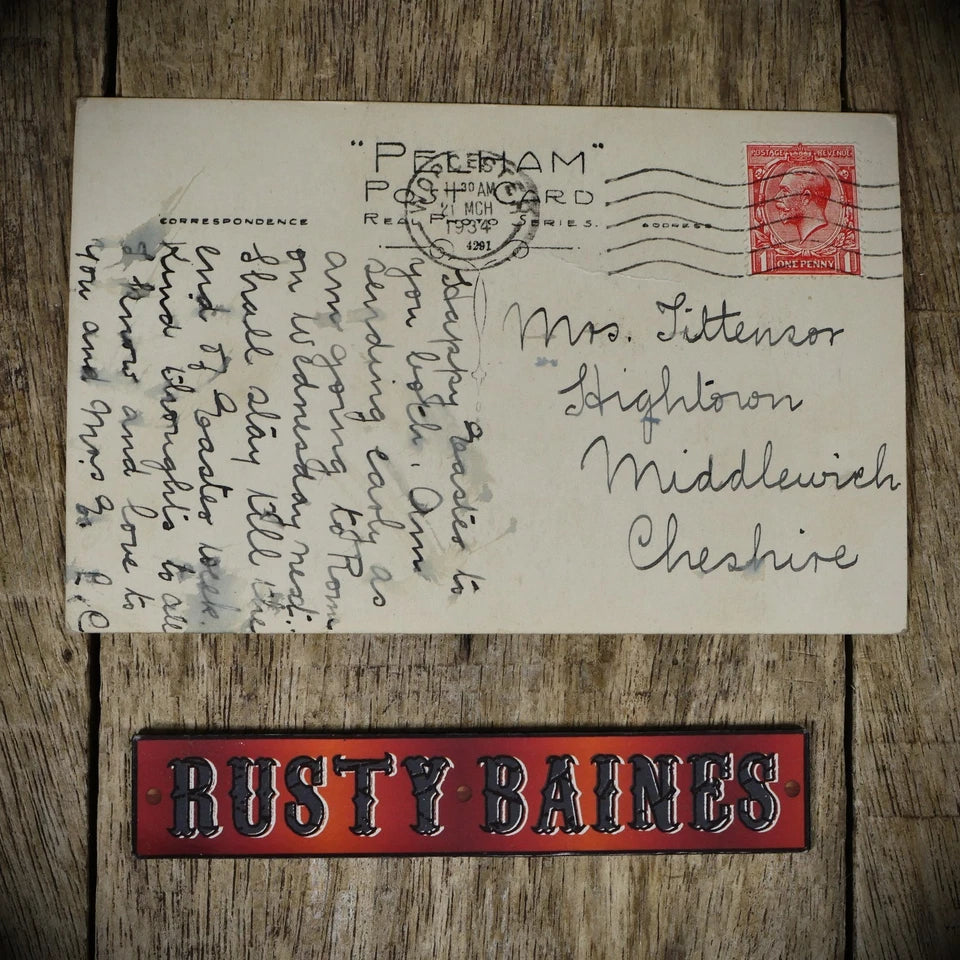 "PELHAM"
POST CARD
REAL PHOTO SERIES.
CORRESPONDENCE
ADDRESS
30 AM
21 MCH
1934
4291
POSTAGE REVENUE
1 ONE PENNY 1
Happy Easter to
you both. Am
sending early as
am going to Rome
on Wednesday next.
Shall stay till the
end of Easter week.
Kind thoughts to all
I know and love to
you and Mrs
Mrs. Tittensor
Hightown
Middlewich
Cheshire
RUSTY BAINES